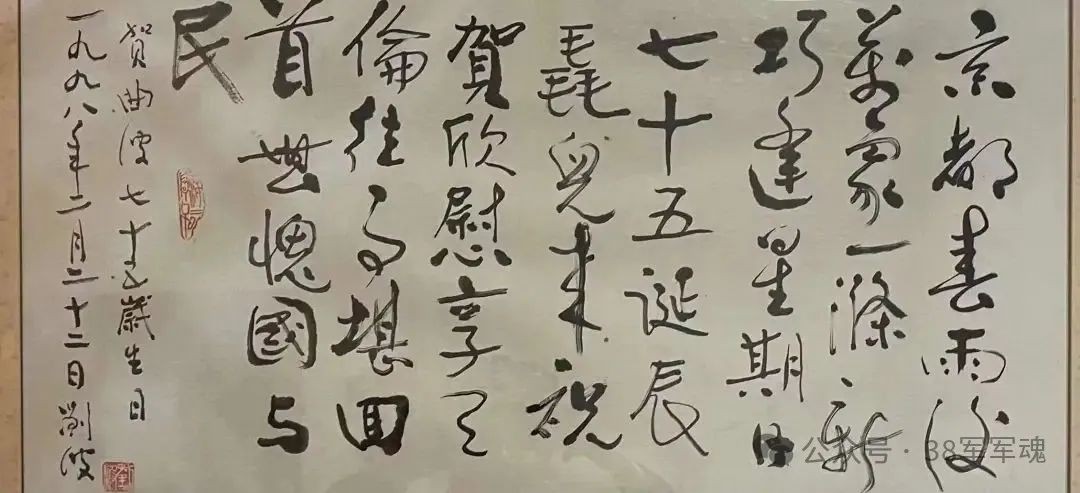 京都春雨後
萬象一滌新
巧逢星期日
七十五誕辰
毳兒来祝
賀欣慰享天
倫往事堪回
首無愧國与
民
賀曲波七十五歲生日
一九九八年二月二十二日劉波
公众号·38军军魂